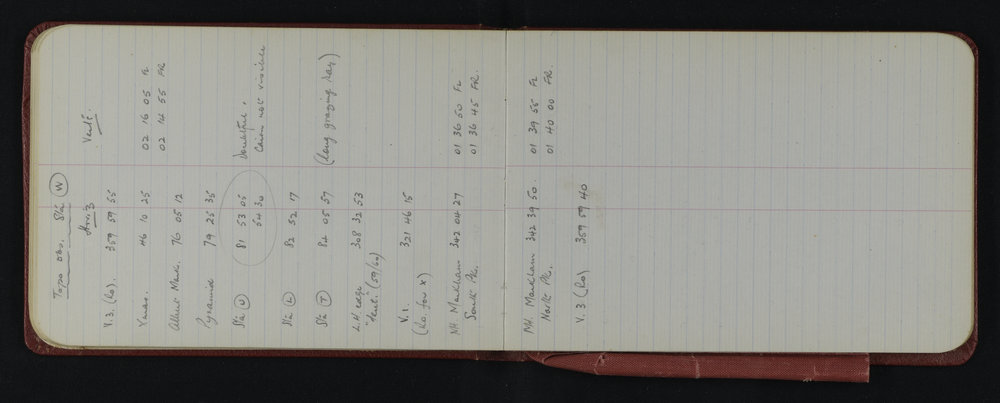 Topo obs. Stn (W)
Horiz Vert.
V.3. (Ro). 359 59 55
Ymas. 46 10 25 02 16 05 FL
02 14 55 FR
Albert Mark. 76 05 12
Pyramid 79 25 35
Stn (U) 81 53 05 Doubtful.
54 30 Cairn not visible
Stn (L) 82 52 17
Stn (T) 84 05 57 (Long grazing ray)
L.H. edge 308 32 53
(59/60)
V.1. 321 46 15
(Ro. for x)
Mt. Markham 342 04 27 01 36 50 FL
South Pk. 01 36 45 FR.
Mt. Markham 342 39 50. 01 39 55 FL
North Pk. 01 40 00 FR.
V. 3 (Ro) 359 59 40